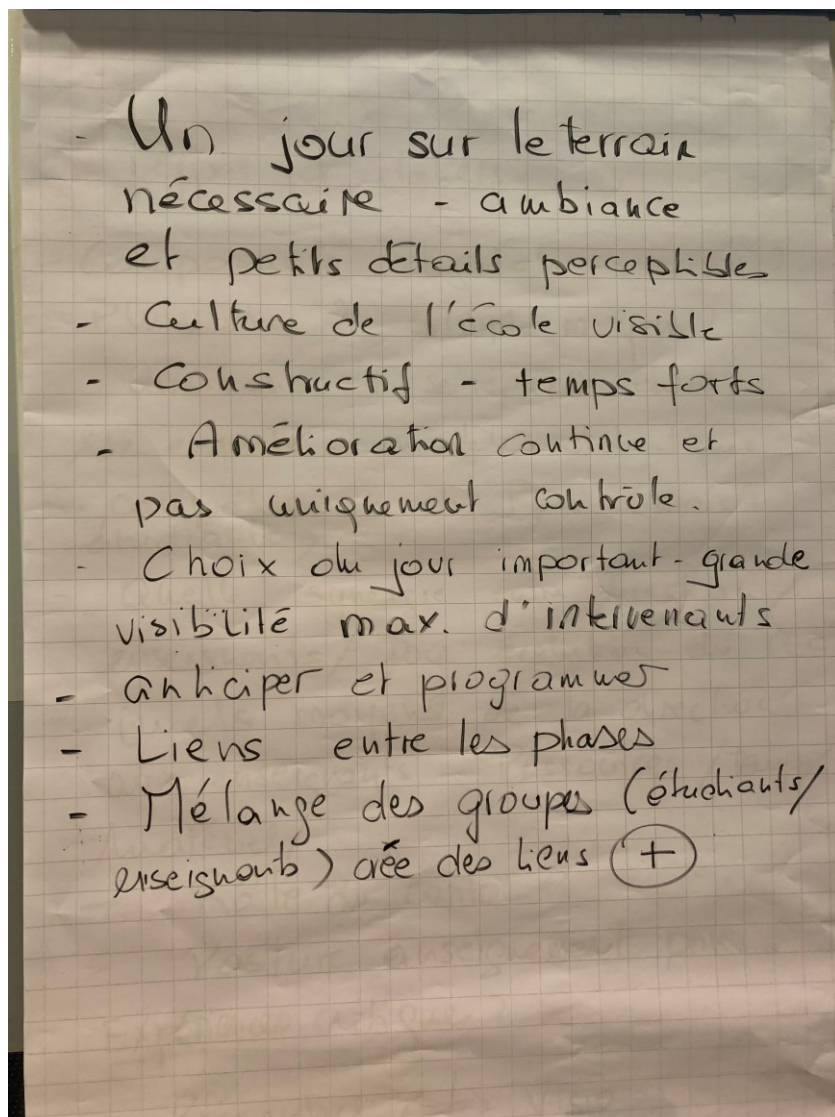 - Un jour sur le terrain
nécessaire - ambiance
et petits détails perceptibles
- Culture de l'école visible
- Constructif - temps forts
- Amélioration continue et
pas uniquement contrôle.
- Choix du jour important - grande
visibilité max. d'intervenants
- anticiper et programmer
- Liens entre les phases
- Mélange des groupes (étudiants/
enseignants) crée des liens +